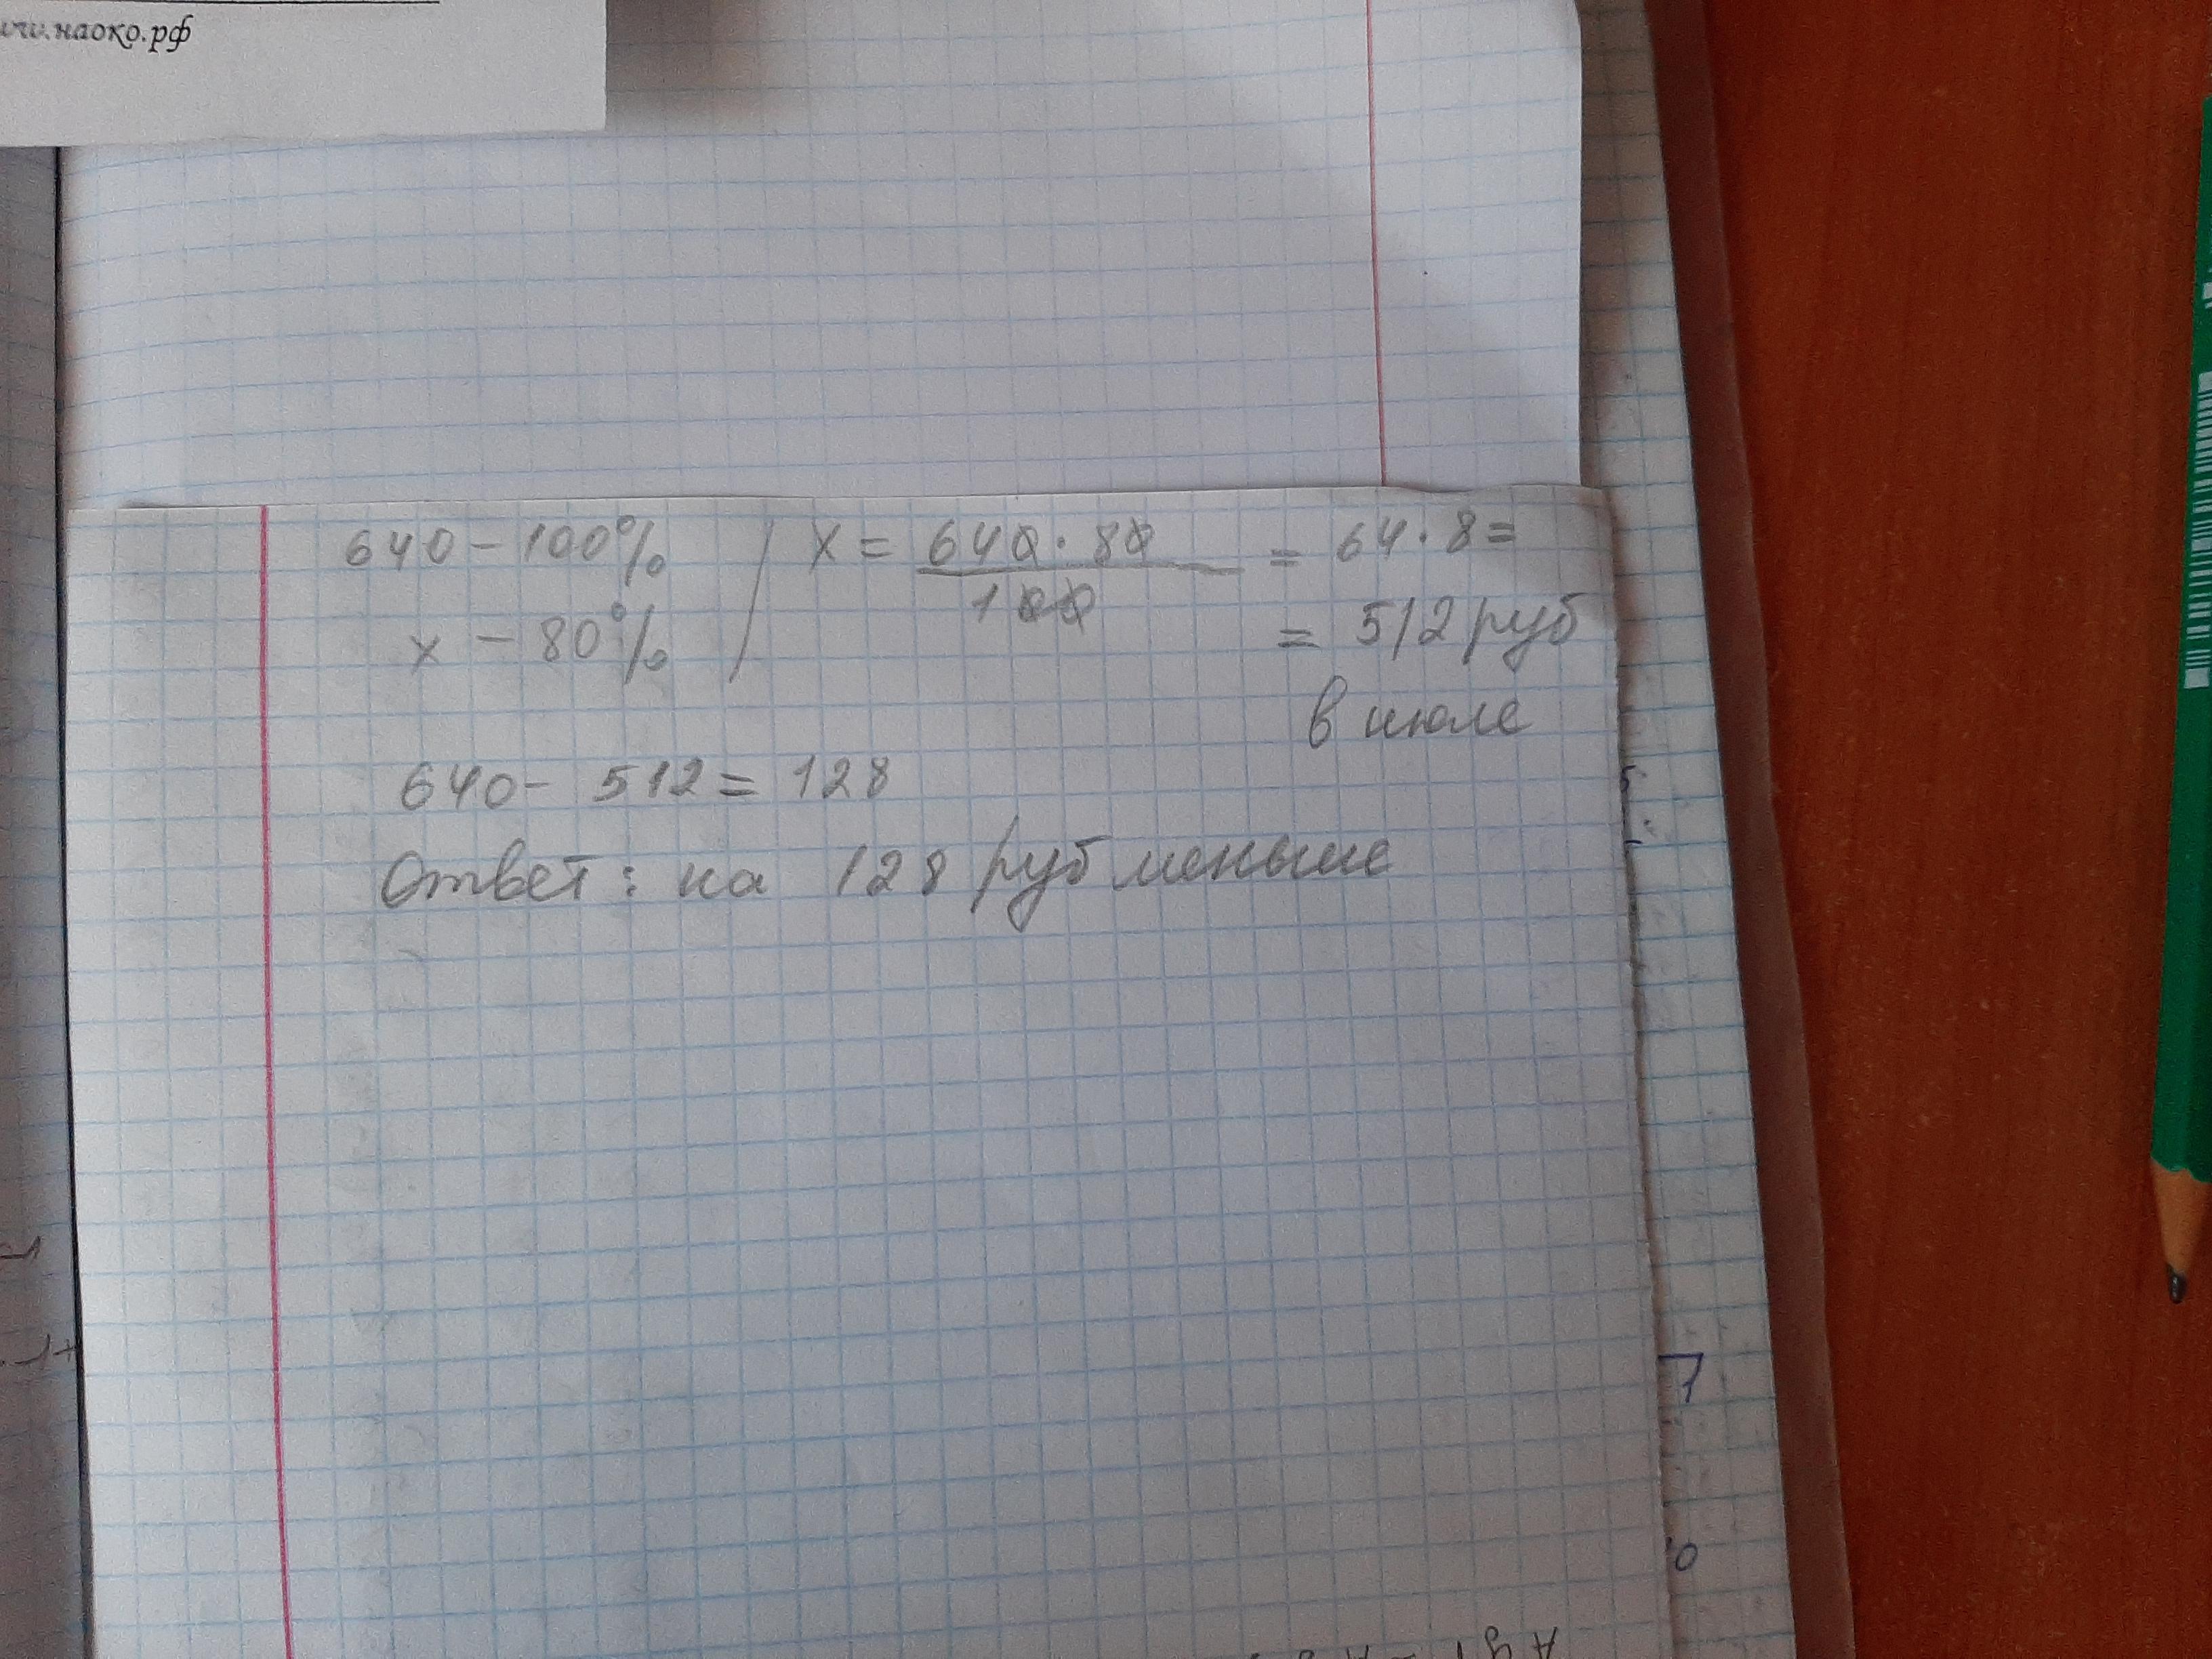 наоко.рф
640 - 100% / x = 640 · 80 / 100 = 64 · 8 =
x - 80% = 512 руб
в июле
640 - 512 = 128
Ответ: на 128 руб меньше